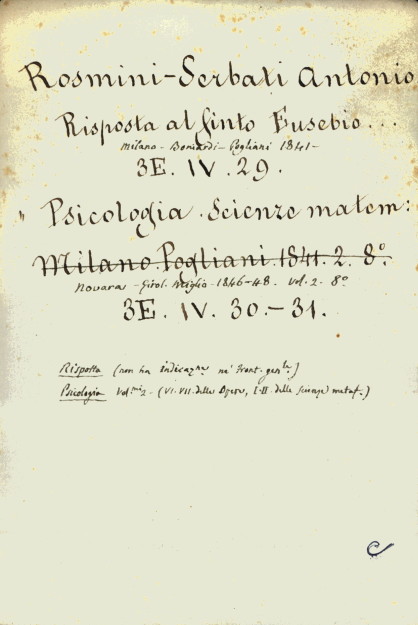 Rosmini-Serbati Antonio
Risposta al finto Eusebio...
Milano - Boniardi - Pogliani 1841 -
3E. IV. 29.
" Psicologia. Scienze matem:
Milano. Pogliani. 1841. 2. 8.°
Novara - Girol. Miglio - 1846-48. vol. 2. 8°
3E. IV. 30.-31.
Risposta (non ha indicazne ne' front. genle.)
Psicologia Vol.mi 2 - (VI-VII. delle Opere, I-II delle scienze metaf.)
C